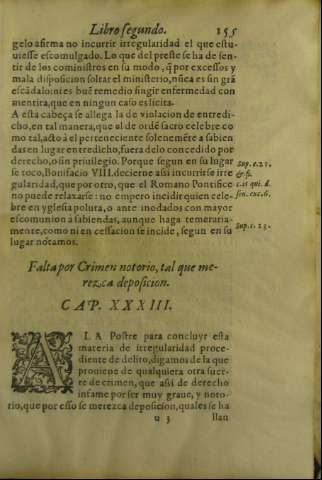 Libro segundo. 155
gelo afirma no incurrir irregularidad el que estu-
uiesse escomulgado. Lo que del preste se ha de sen-
tir de los coministros en su modo, q̃ por excessos y
mala disposicion soltar el ministerio, nũca es sin grã
escãdalo: ni es buẽ remedio fingir enfermedad con
mentira, que en ningun caso es licita.
A esta cabeça se allega la de violacion de entredi-
cho, en tal manera, que el de ordẽ sacro celebre co
mo tal, acto à el perteneciente solenemẽte a sabien
das en lugar entredicho, fuera delo concedido por
derecho, o sin priuilegio. Porque segun en su lugar
se toco, Bonifacio VIII. decierne assi incurrirse irre
gularidad, que por otro, que el Romano Pontifice
no puede relaxarse: no empero incidir quien cele-
bre en yglesia poluta, o ante inodados con mayor
escomunion à sabiendas, aunque haga temeraria-
mente, como ni en cessacion se incide, segun en su
lugar notamos.
Sup. c. 21.
Sup. c. 23.
Falta por Crimen notorio, tal que me-
rezca deposicion.
CAP. XXXIII.
A LA Postre para concluyr esta
materia de irregularidad proce-
diente de delito, digamos de la que
prouiene de qualquiera otra suer-
te de crimen, que assi de derecho
infame por ser muy graue, y noto-
rio, que por esso se merezca deposicion, quales se ha
u 3 llan